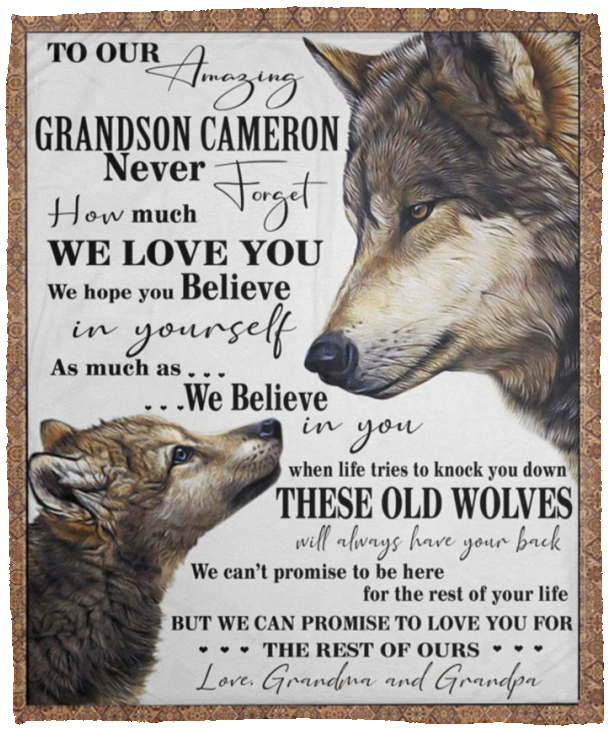 TO OUR Amazing
GRANDSON CAMERON
Never Forget
How much
WE LOVE YOU
We hope you Believe
in yourself
As much as . . .
. . .We Believe
in you
when life tries to knock you down
THESE OLD WOLVES
will always have your back
We can't promise to be here
for the rest of your life
BUT WE CAN PROMISE TO LOVE YOU FOR
♥ ♥ ♥ THE REST OF OURS ♥ ♥ ♥
Love, Grandma and Grandpa